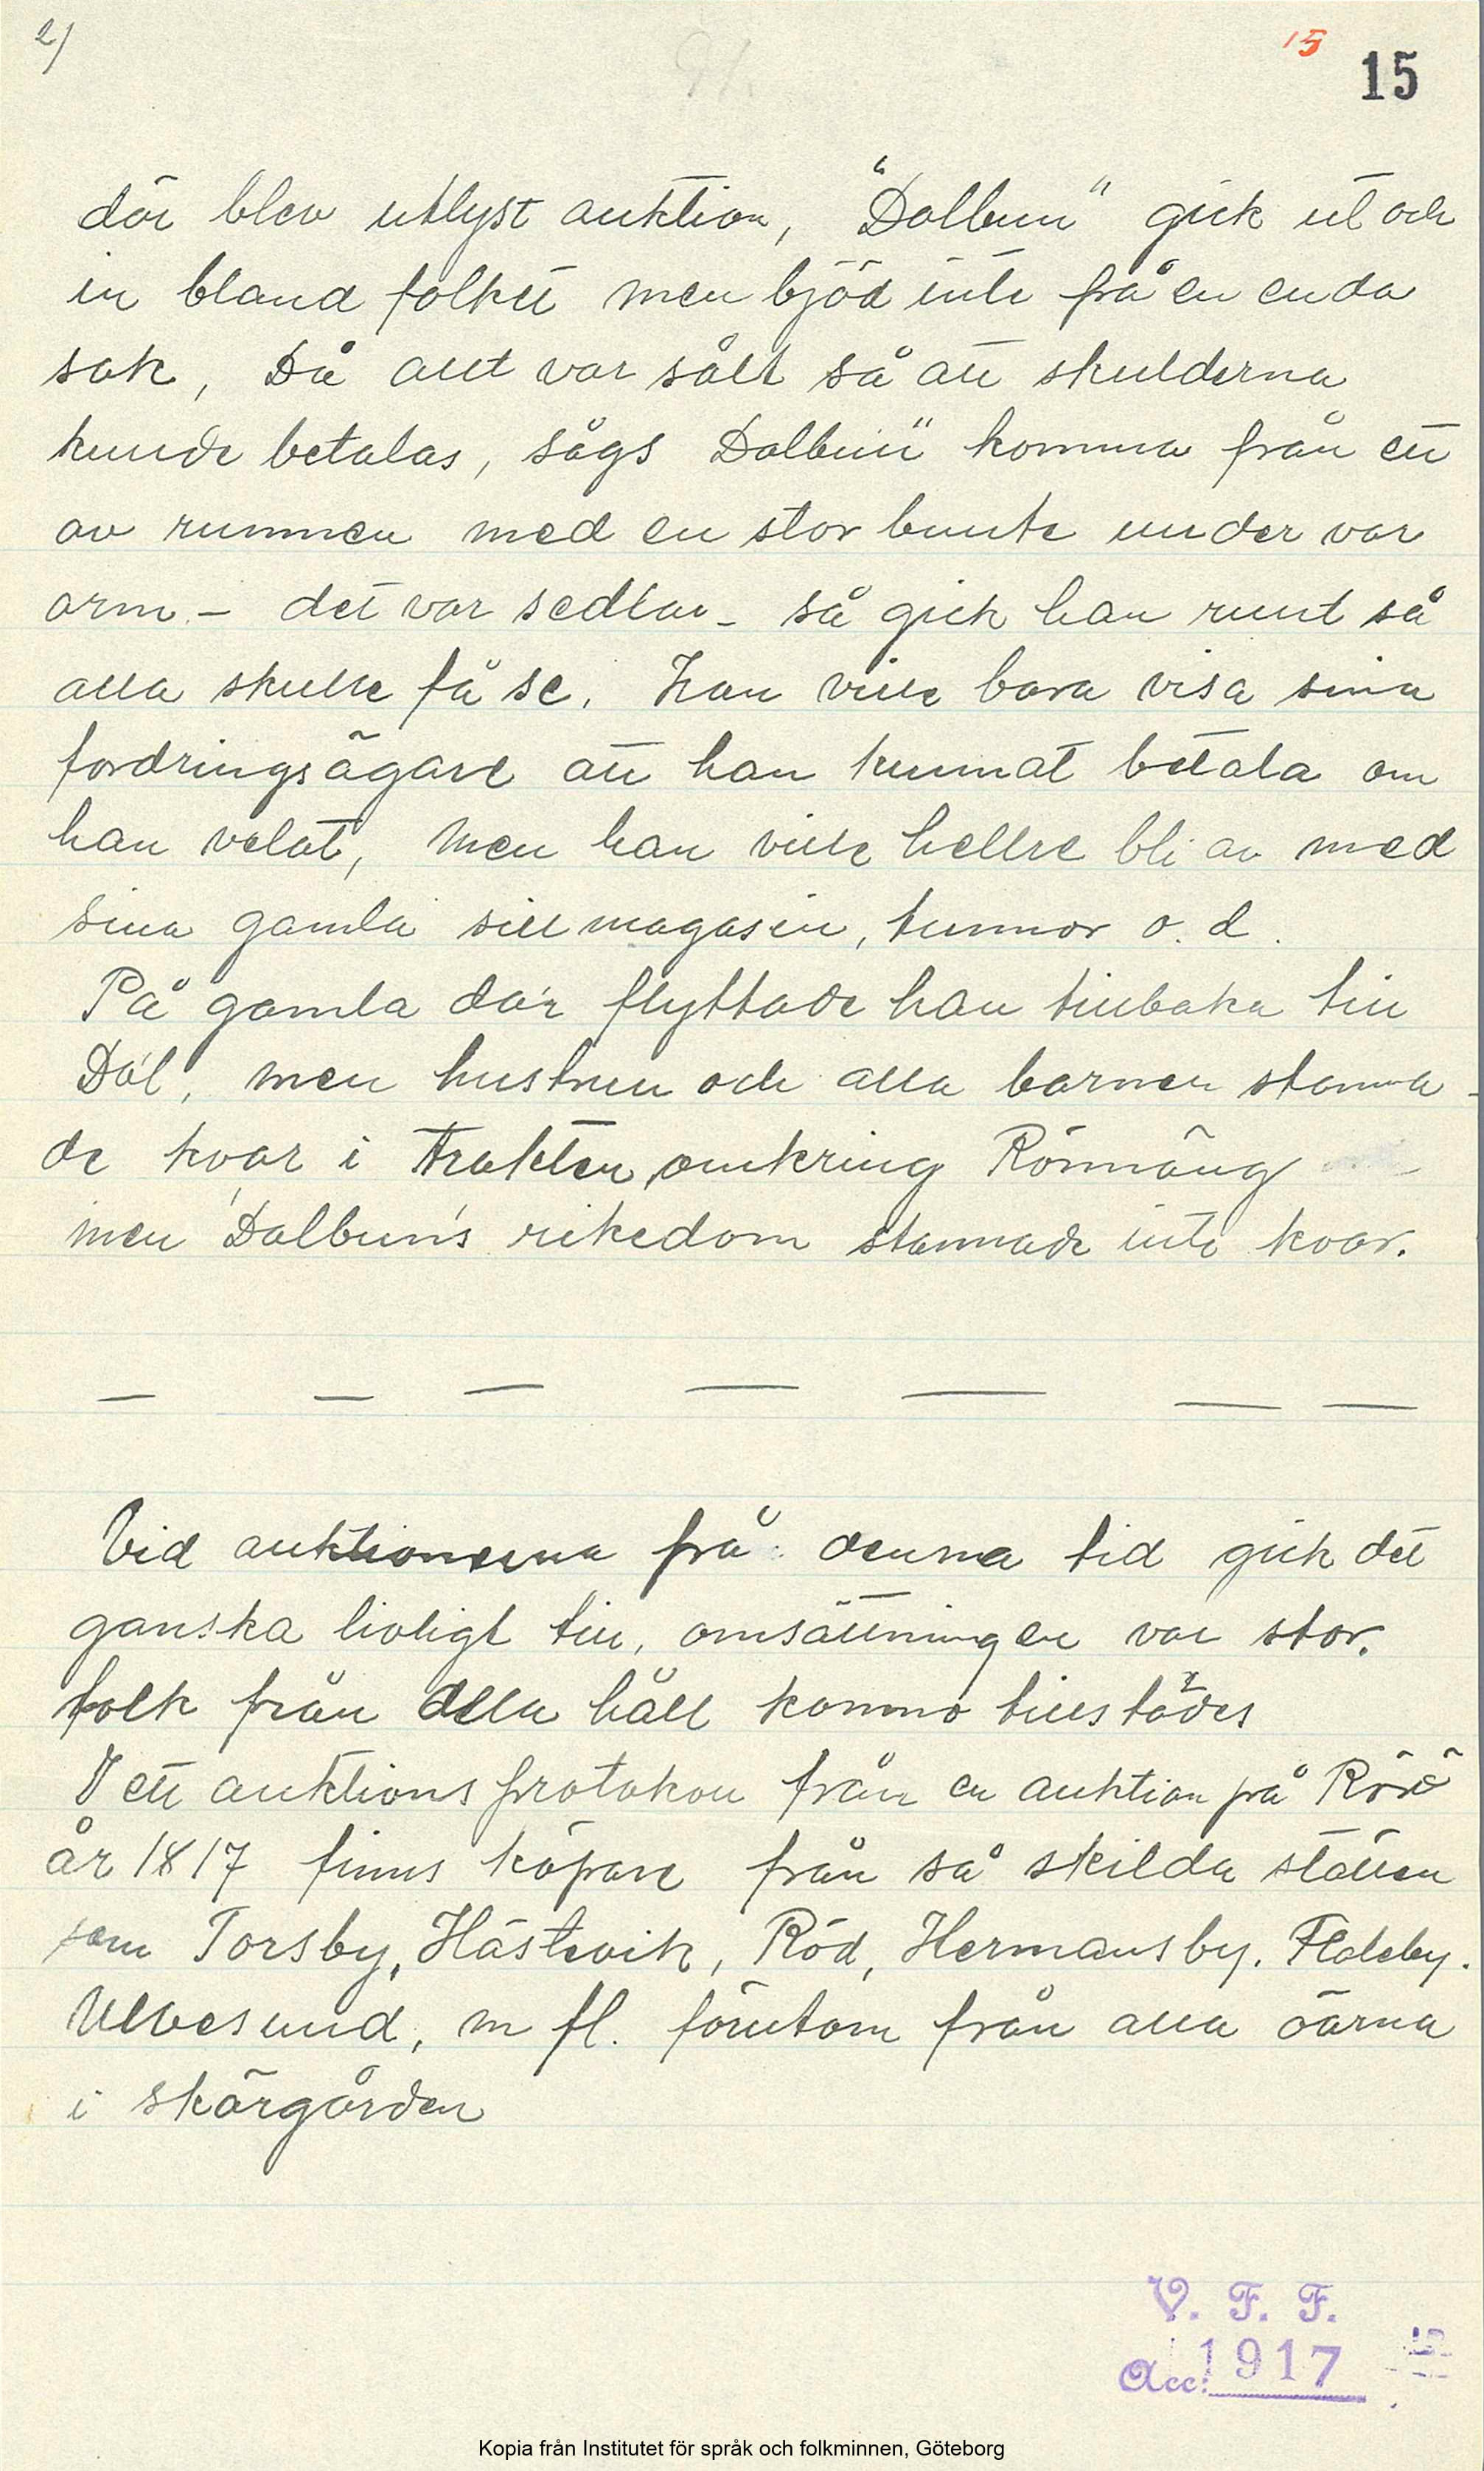 2/
15
15
där blev utlyst auktion, "Dalbun" gick ut och
in bland folket men bjöd inte på en enda
sak, Då allt var sålt så att skulderna
kunde betalas, sågs Dalbun" komma från ett
av rummen med en stor bunte under var
arm. - det var sedlar - så gick han runt så
alla skulle få se. Han ville bara visa sina
fordringsägare att han kunnat betala om
han velat, men han ville hellre bli av med
sina gamla sillmagasin, tunnor o. d.
På gamla da'r flyttade han tillbaka till
Dal, men hustrun och alla barnen stanna-
de kvar i trakten omkring Rönnäng
men 'Dalbun's rikedom stannade inte kvar.
Vid auktionerna frå. denna tid gick det
ganska livligt till, omsättningen var stor.
folk från alla håll kommo tillstädes
I ett auktionsprotokoll från en auktion på Rörö
år 1817 finns köpare från så skilda ställen
som Torsby, Hästevik, Röd, Hermansby.
Ulvesund, m fl. förutom från alla öarna
i skärgården
V. F. F.
Acc: 1917
Kopia från Institutet för språk och folkminnen, Göteborg